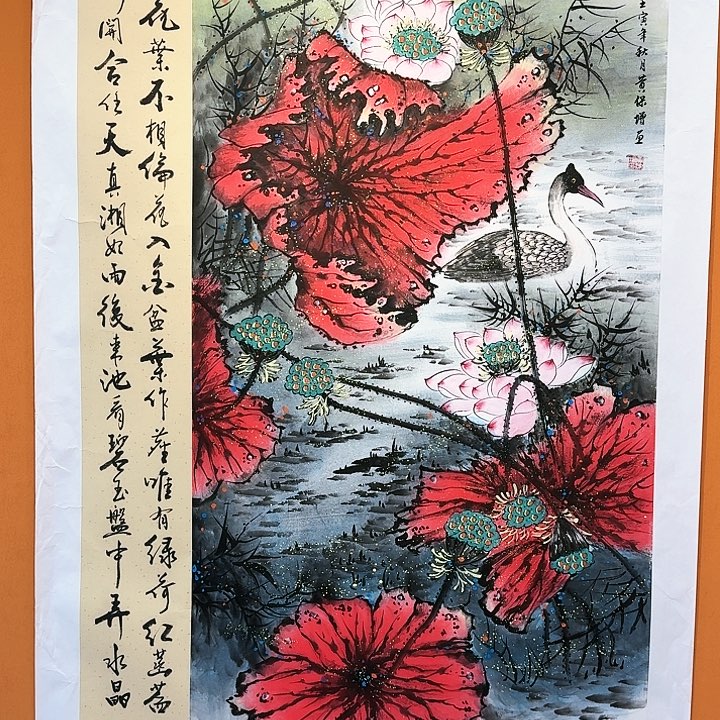 壬寅年秋月黄保增画
花葉不相倫花入金盆葉作塵唯有綠荷紅菡萏
開合任天真湘妃雨後來池看碧玉盤中弄水晶